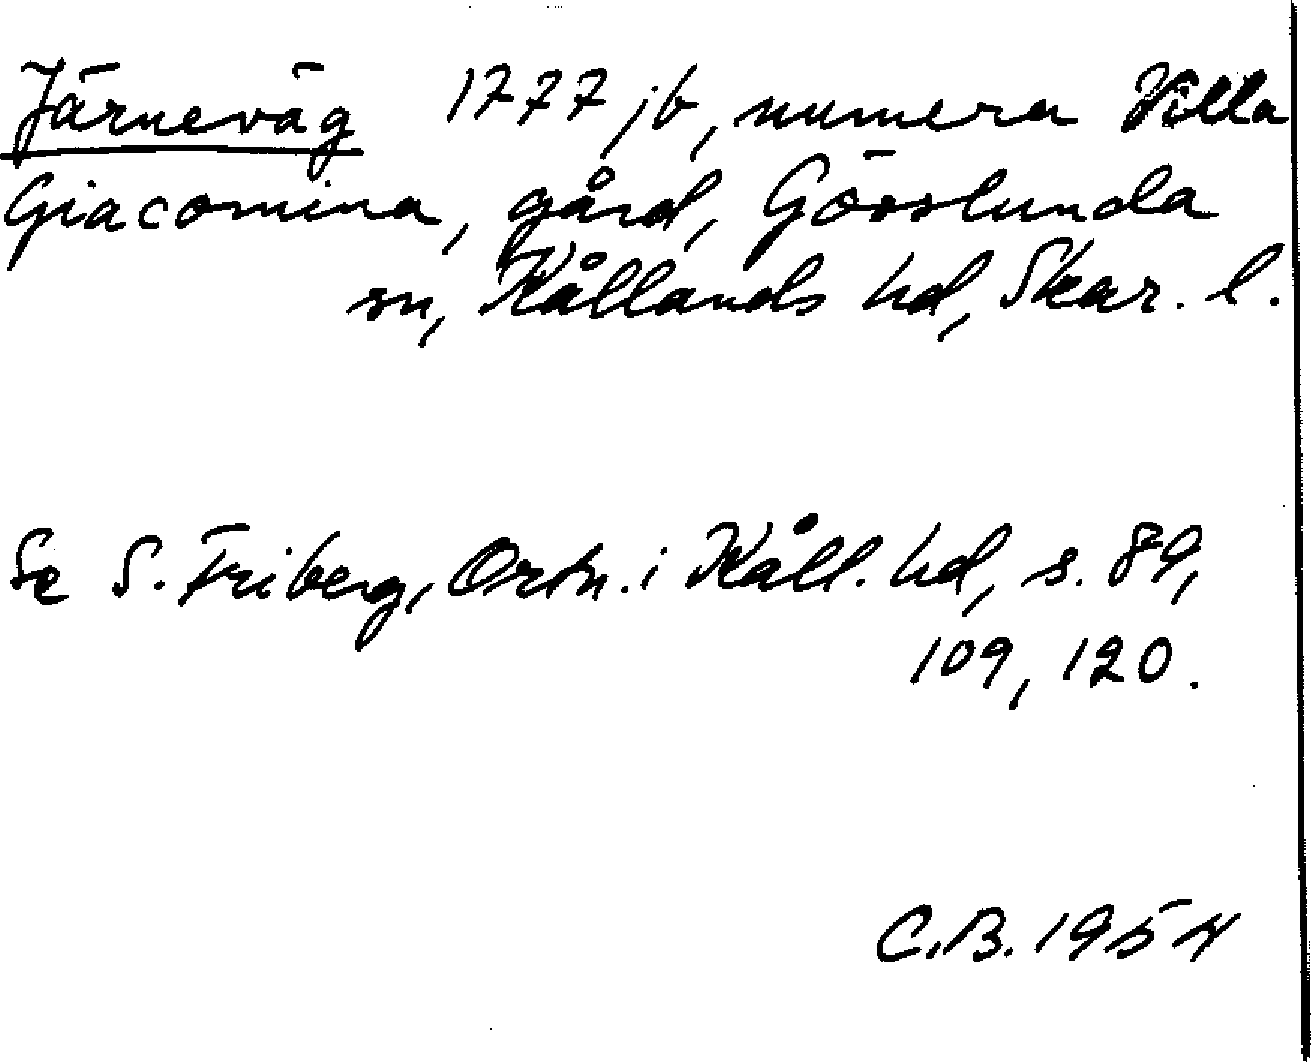 Järneväg 1777 jb, numera Villa
Giacomina, gård, Gösslunda
sn, Kållands hd, Skar. l.
Se S. Friberg, Ortn. i Kåll. hd, s. 89,
109, 120.
C.B. 1954